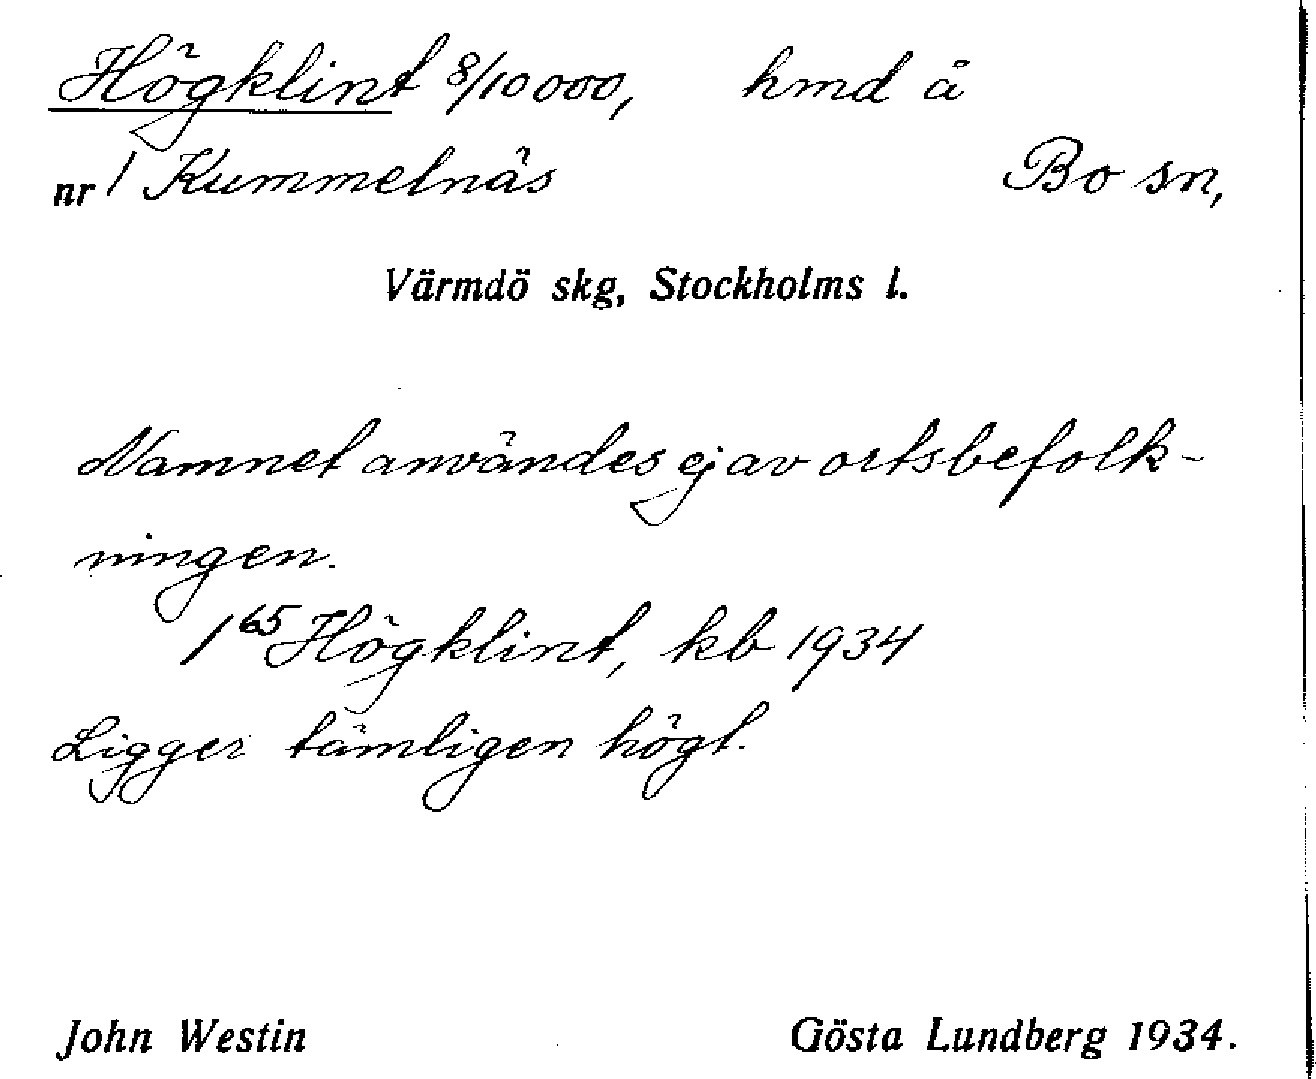 Högklint 8/10 000, hmd å
nr 1 Kummelnäs Bo sn,
Värmdö skg, Stockholms l.
Namnet användes ej av ortsbefolk-
ningen.
1⁶⁵ Högklint, kb 1934
Ligger tämligen högt.
John Westin Gösta Lundberg 1934.